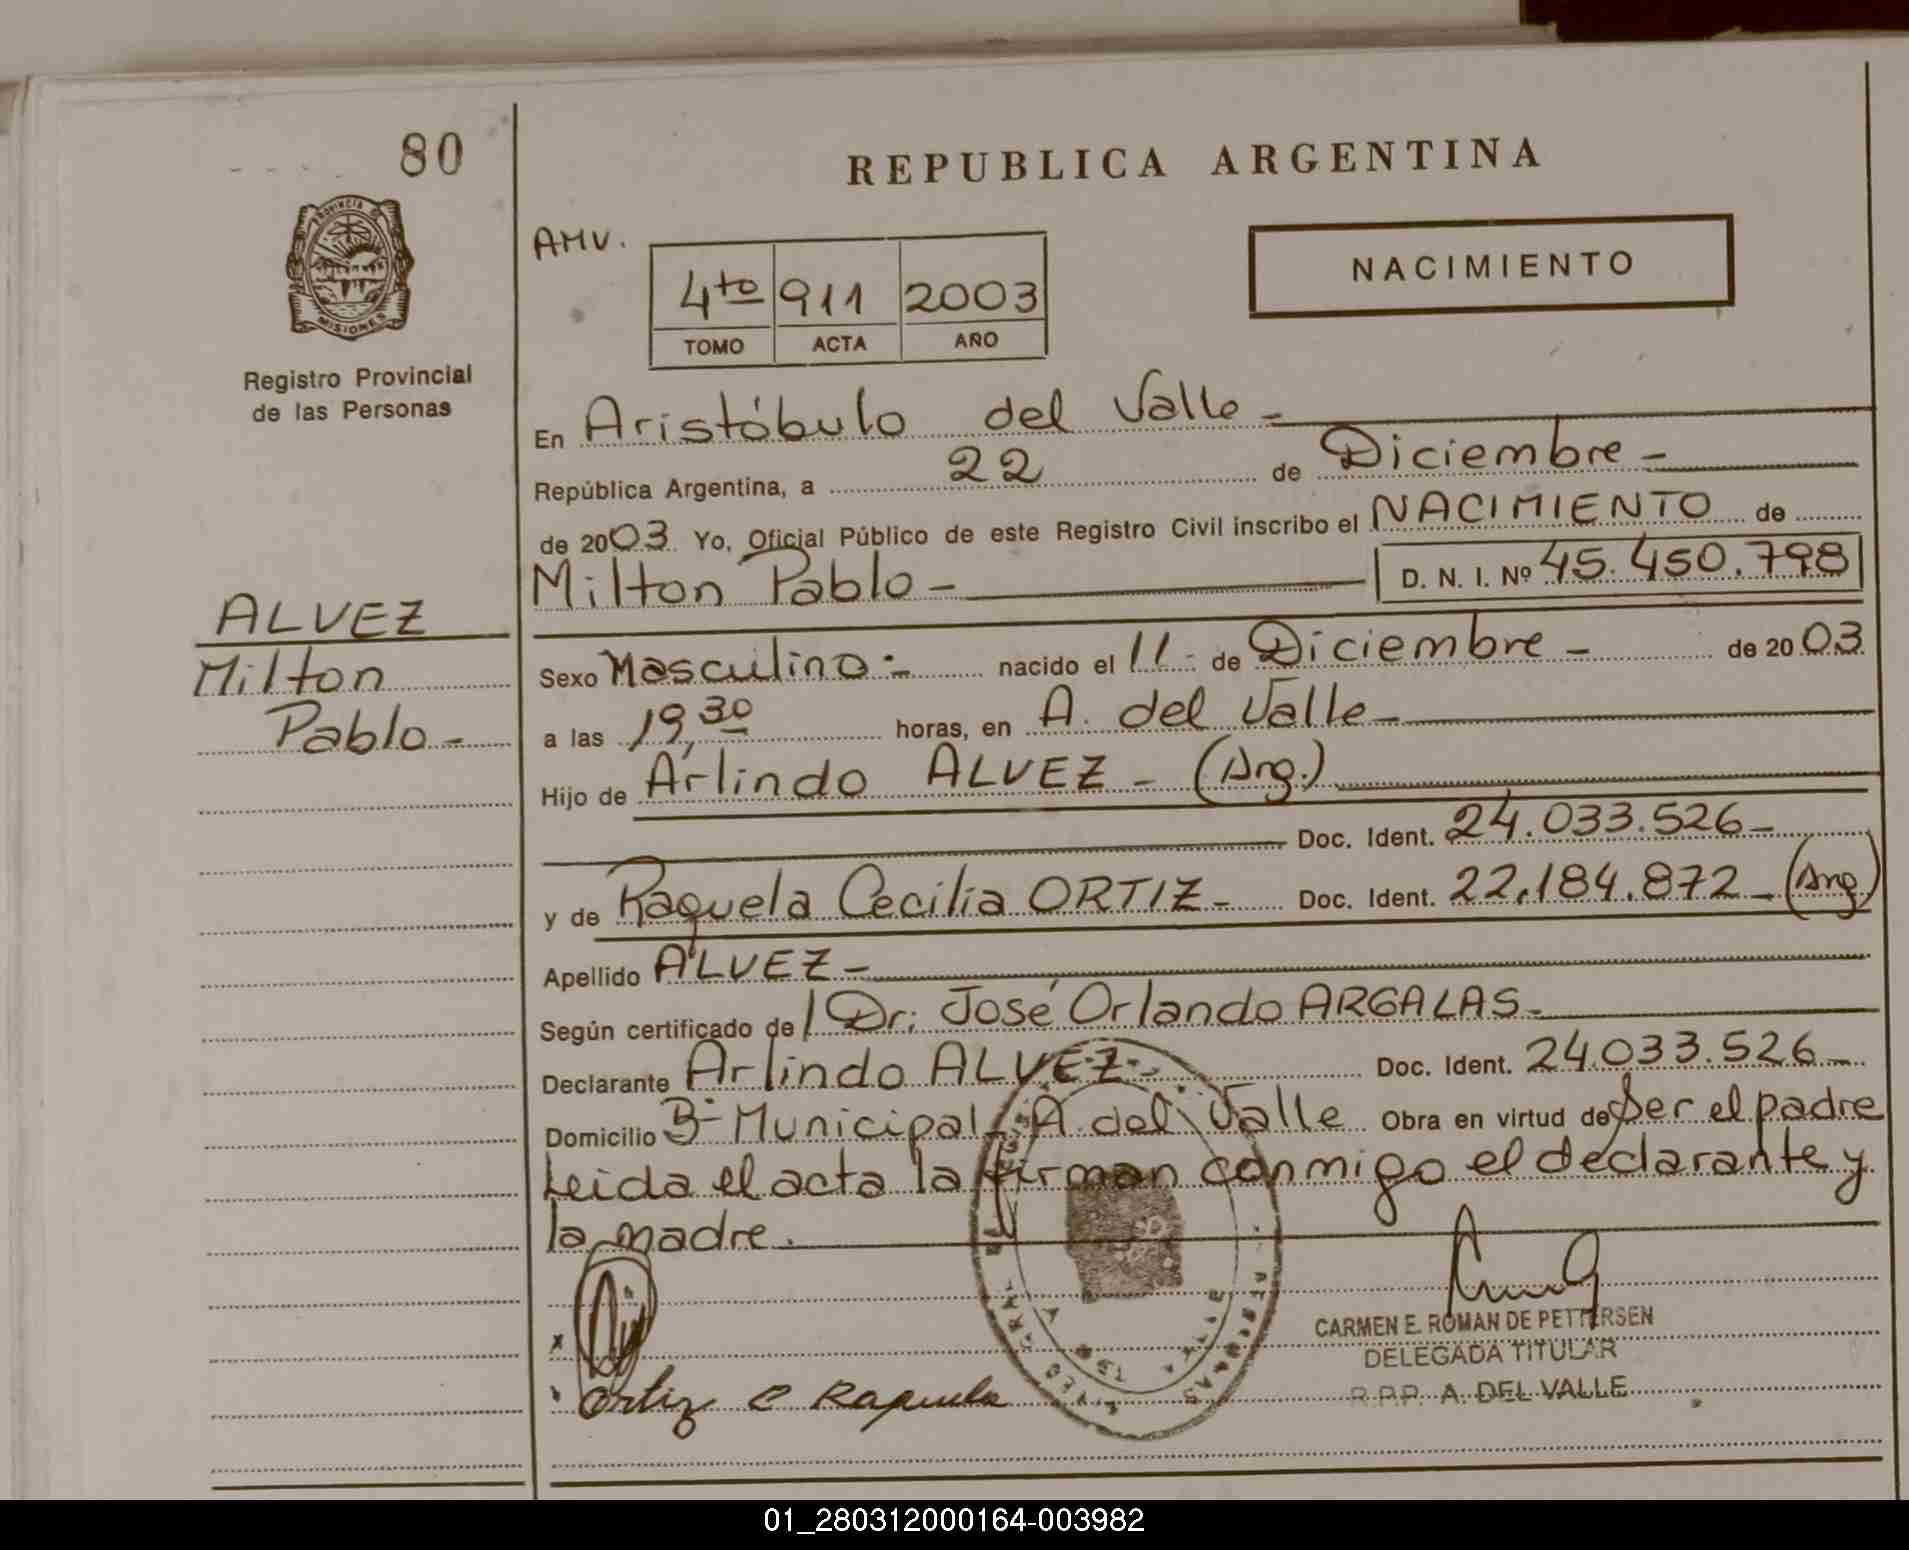 80
REPUBLICA ARGENTINA
PROVINCIA DE
MISIONES
Registro Provincial
de las Personas
AMV.
4to 911 2003
TOMO ACTA AÑO
NACIMIENTO
En Aristóbulo del Valle -
República Argentina, a 22 de Diciembre -
de 2003 Yo, Oficial Público de este Registro Civil inscribo el NACIMIENTO de
Milton Pablo - D. N. I. Nº 45.450.798
ALVEZ
Milton
Pablo -
Sexo Masculino - nacido el 11 - de Diciembre - de 2003
a las 19,30 horas, en A. del Valle -
Hijo de Arlindo ALVEZ - (Arg.)
Doc. Ident. 24.033.526 -
y de Raquela Cecilia ORTIZ - Doc. Ident. 22.184.872 - (Arg)
Apellido ALVEZ -
Según certificado de Dr. José Orlando ARGALAS -
Declarante Arlindo ALVEZ - Doc. Ident. 24.033.526 -
Domicilio Bº Municipal - A. del Valle Obra en virtud de Ser el padre
Leida el acta la firman conmigo el declarante y
la madre.
CARMEN E. ROMAN DE PETTERSEN
DELEGADA TITULAR
R.P.P. A. DEL VALLE
x
Ortiz C Raquela
01_280312000164-003982